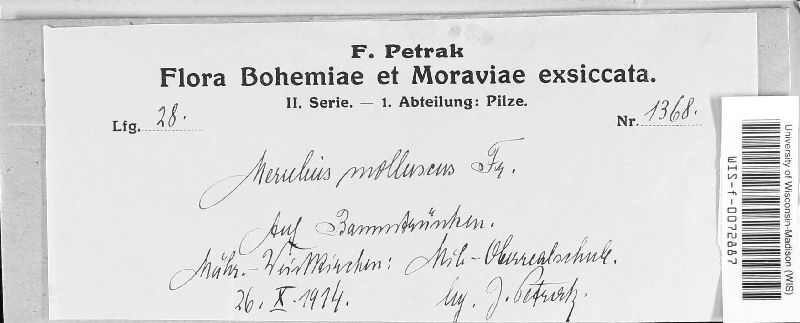 F. Petrak
Flora Bohemiae et Moraviae exsiccata.
II. Serie. — 1. Abteilung: Pilze.
Lfg. 28.
Nr. 1368.
Merulius molluscus Fr.
Auf Baumstrünken.
Mähr.-Weisskirchen: Mil.-Oberrealschule.
26. X. 1914. lg. J. Petrak.
University of Wisconsin-Madison (WIS)
WIS-f-0072887